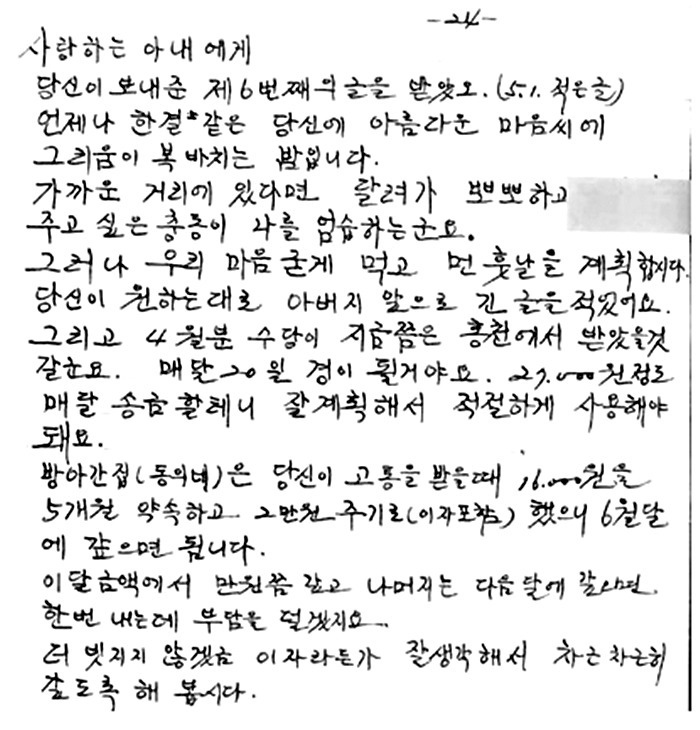 -24-
사랑하는 아내에게
당신이 보내준 제6번째의 글을 받았오. (5.1. 적은글)
언제나 한결같은 당신에 아름다운 마음씨에
그리움이 복바치는 밤입니다.
가까운 거리에 있다면 달려가 뽀뽀하고
주고 싶은 충동이 나를 엄습하는군요.
그러나 우리 마음 굳게 먹고 먼 훗날을 계획합시다.
당신이 원하는대로 아버지 앞으로 긴 글을 적었어요.
그리고 4월분 수당이 지금쯤은 홍천에서 받았을것
같군요. 매달 20일 경이 될거야요. 27,000원정도
매달 송금할테니 잘계획해서 적절하게 사용해야
돼요.
방아간집(동의네)은 당신이 고통을 받을때 16,000원을
5개월 약속하고 2만원 주기로(이자포함) 했으니 6월달
에 갚으면 됩니다.
이달 금액에서 만원쯤 갚고 나머지는 다음달에 갚으면
한번 내는데 부담은 덜겠지요.
더 빚지지 않겠금 이자라든가 잘생각해서 차근차근히
갚도록 해 봅시다.